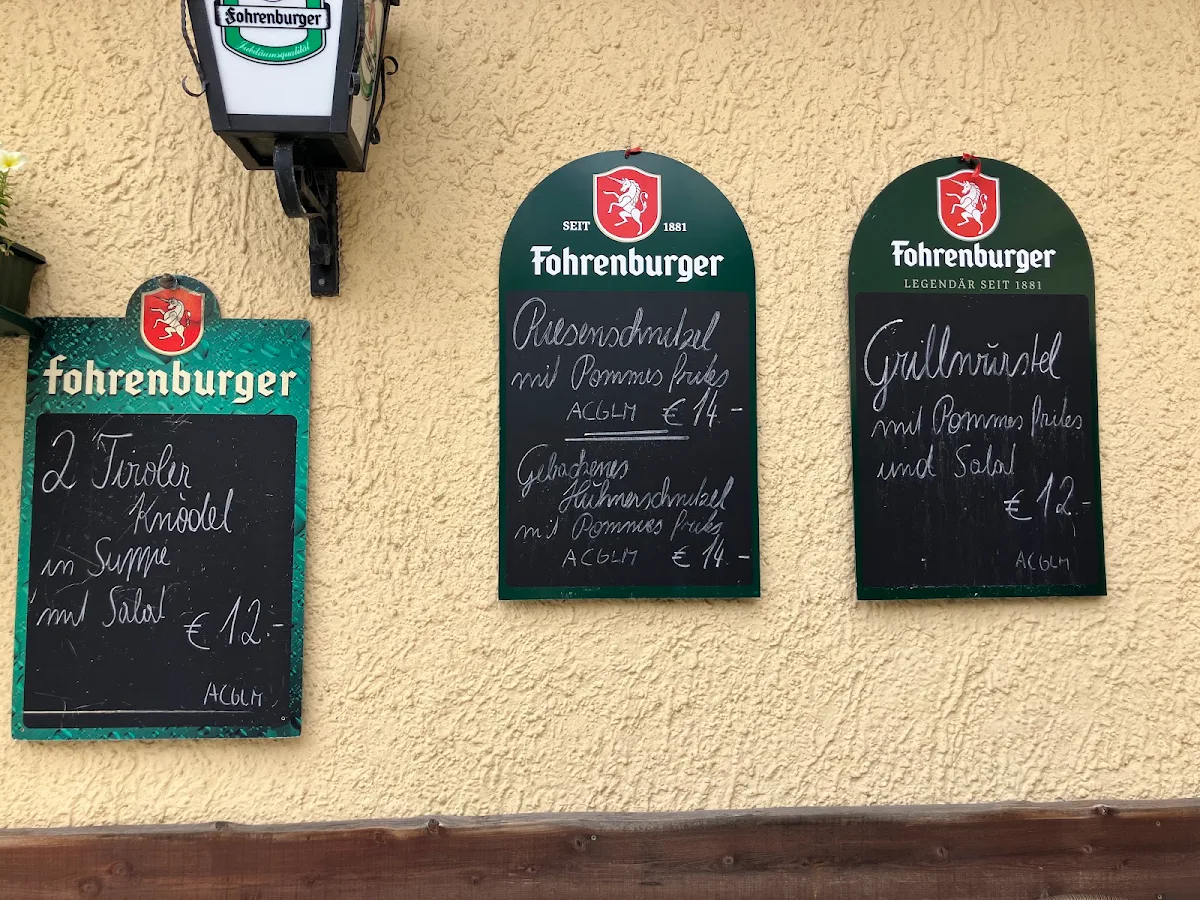 Fohrenburger
Jubiläumsqualität
fohrenburger
2 Tiroler
Knödel
in Suppe
mit Salat
€ 12.-
ACGLM
SEIT 1881
Fohrenburger
Riesenschnitzel
mit Pommes frites
ACGLM € 14.-
Gebackenes
Hühnerschnitzel
mit Pommes frites
ACGLM € 14.-
Fohrenburger
LEGENDÄR SEIT 1881
Grillwürstel
mit Pommes frites
und Salat
€ 12.-
ACGLM